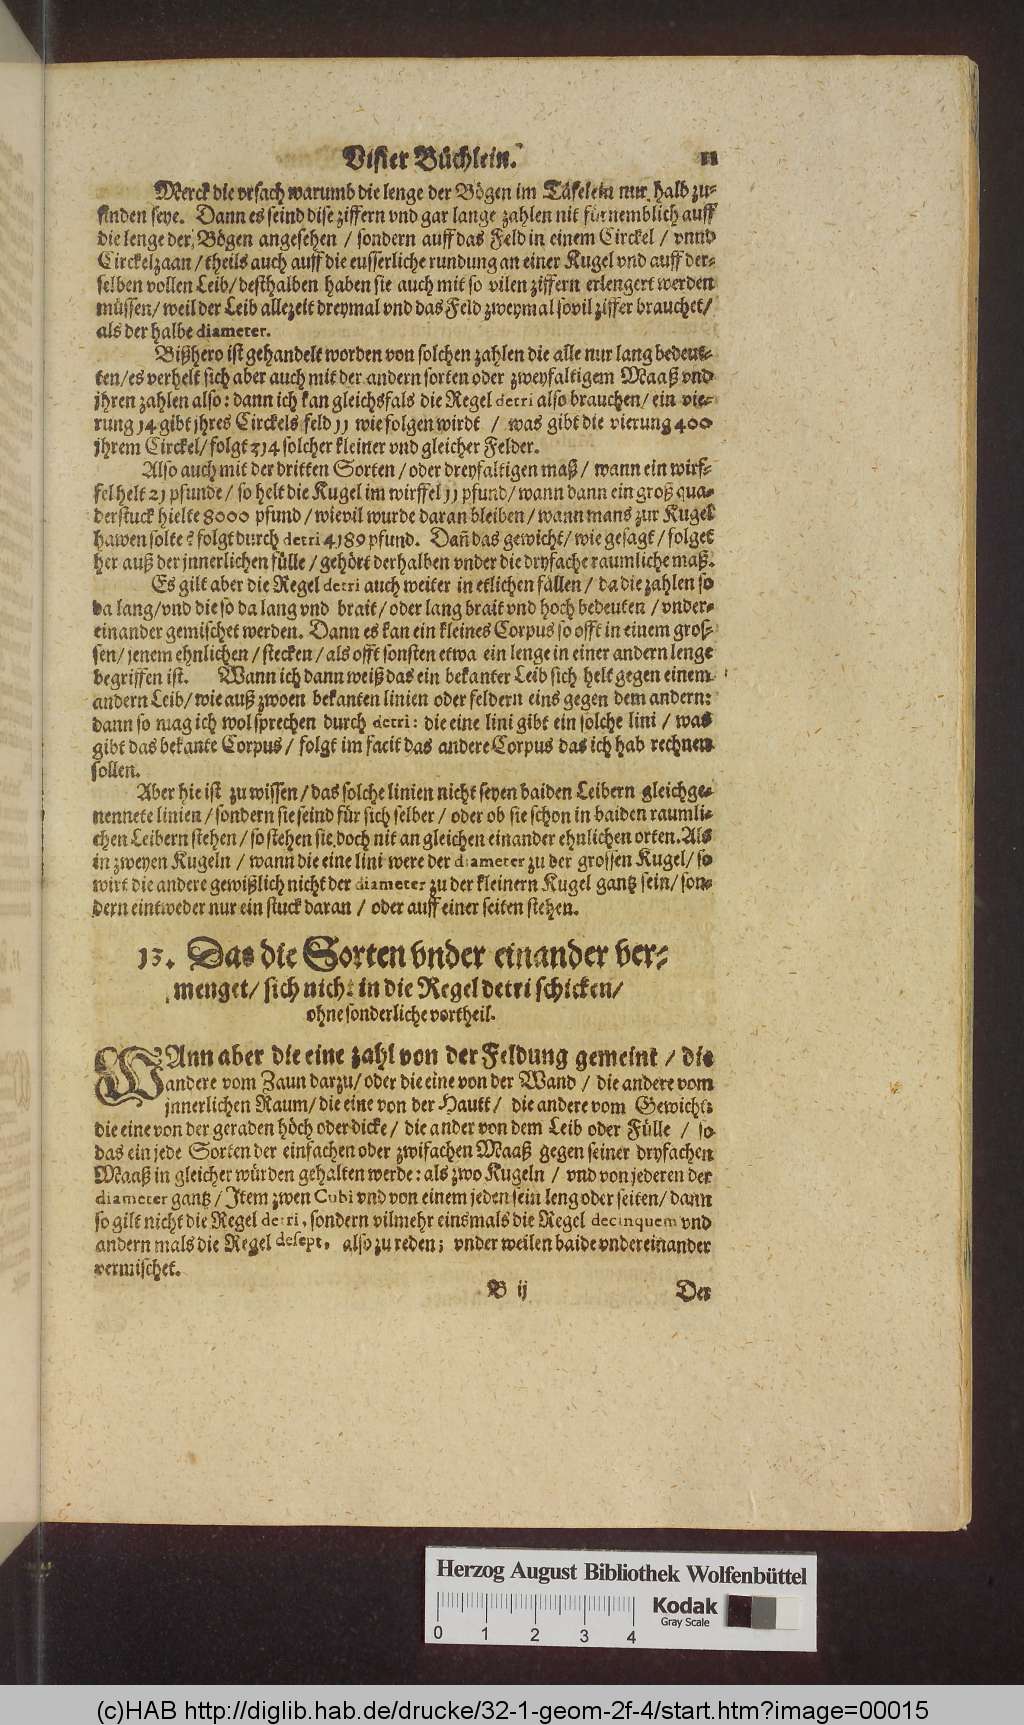 Visier Büchlein. 11
Merck die vrsach warumb die lenge der Bögen im Täfelein nur halb zu-
finden seye. Dann es seind dise ziffern vnd gar lange zahlen nit fürnemblich auff
die lenge der Bögen angesehen / sondern auff das Feld in einem Circkel / vnnd
Circkelzaan / theils auch auff die eusserliche rundung an einer Kugel vnd auff der-
selben vollen Leib / desthalben haben sie auch mit so vilen ziffern erlengert werden
müssen / weil der Leib allezeit dreymal vnd das Feld zweymal sovil ziffer brauchet /
als der halbe diameter.
Bißhero ist gehandelt worden von solchen zahlen die alle nur lang bedeut-
ten / es verhelt sich aber auch mit der andern sorten oder zweyfaltigem Maaß vnd
jhren zahlen also: dann ich kan gleichsfals die Regel detri also brauchen / ein vie-
rung 14 gibt jhres Circkels feld 11 wie folgen wirdt / was gibt die vierung 400
jhrem Circkel / folgt 314 solcher kleiner vnd gleicher Felder.
Also auch mit der dritten Sorten / oder dreyfaltigen maß / wann ein würf-
fel helt 21 pfunde / so helt die Kugel im wirffel 11 pfund / wann dann ein groß qua-
derstuck hielte 8000 pfund / wievil wurde daran bleiben / wann mans zur Kugel
hawen solte? folgt durch detri 4189 pfund. Dañ das gewicht / wie gesagt / folget
her auß der jnnerlichen fülle / gehört derhalben vnder die dryfache raumliche maß.
Es gilt aber die Regel detri auch weiter in etlichen fällen / da die zahlen so
da lang / vnd die so da lang vnd brait / oder lang brait vnd hoch bedeuten / vnder-
einander gemischet werden. Dann es kan ein kleines Corpus so offt in einem gros-
sen / jenem ehnlichen / stecken / als offt sonsten etwa ein lenge in einer andern lenge
begriffen ist. Wann ich dann weiß das ein bekanter Leib sich helt gegen einem
andern Leib / wie auß zwoen bekanten linien oder feldern eins gegen dem andern:
dann so mag ich wol sprechen durch detri: die eine lini gibt ein solche lini / was
gibt das bekante Corpus / folgt im facit das andere Corpus das ich hab rechnen
sollen.
Aber hie ist zu wissen / das solche linien nicht seyen baiden Leibern gleichge-
nennete linien / sondern sie seind für sich selber / oder ob sie schon in baiden raumli-
chen Leibern stehen / so stehen sie doch nit an gleichen einander ehnlichen orten. Als
in zweyen Kugeln / wann die eine lini were der diameter zu der grossen Kugel / so
wirt die andere gewißlich nicht der diameter zu der kleinern Kugel gantz sein / son-
dern eintweder nur ein stuck daran / oder auff einer seiten stehen.
13. Das die Sorten vnder einander ver-
menget / sich nicht in die Regel detri schicken /
ohne sonderliche vortheil.
WAnn aber die eine zahl von der Feldung gemeint / die
andere vom Zaun darzu / oder die eine von der Wand / die andere vom
jnnerlichen Raum / die eine von der Hautt / die andere vom Gewicht:
die eine von der geraden höch oder dicke / die ander von dem Leib oder Fülle / so
das ein jede Sorten der einfachen oder zwifachen Maaß gegen seiner dryfachen
Maaß in gleicher würden gehalten werde: als zwo Kugeln / vnd von jederen der
diameter gantz / Item zwen Cubi vnd von einem jeden sein leng oder seiten / dann
so gilt nicht die Regel detri, sondern vilmehr einsmals die Regel decinquem vnd
andern mals die Regel desept, also zu reden; vnder weilen baide vndereinander
vermischet.
B ij Der
Herzog August Bibliothek Wolfenbüttel
Kodak
Gray Scale
0 1 2 3 4
(c)HAB http://diglib.hab.de/drucke/32-1-geom-2f-4/start.htm?image=00015